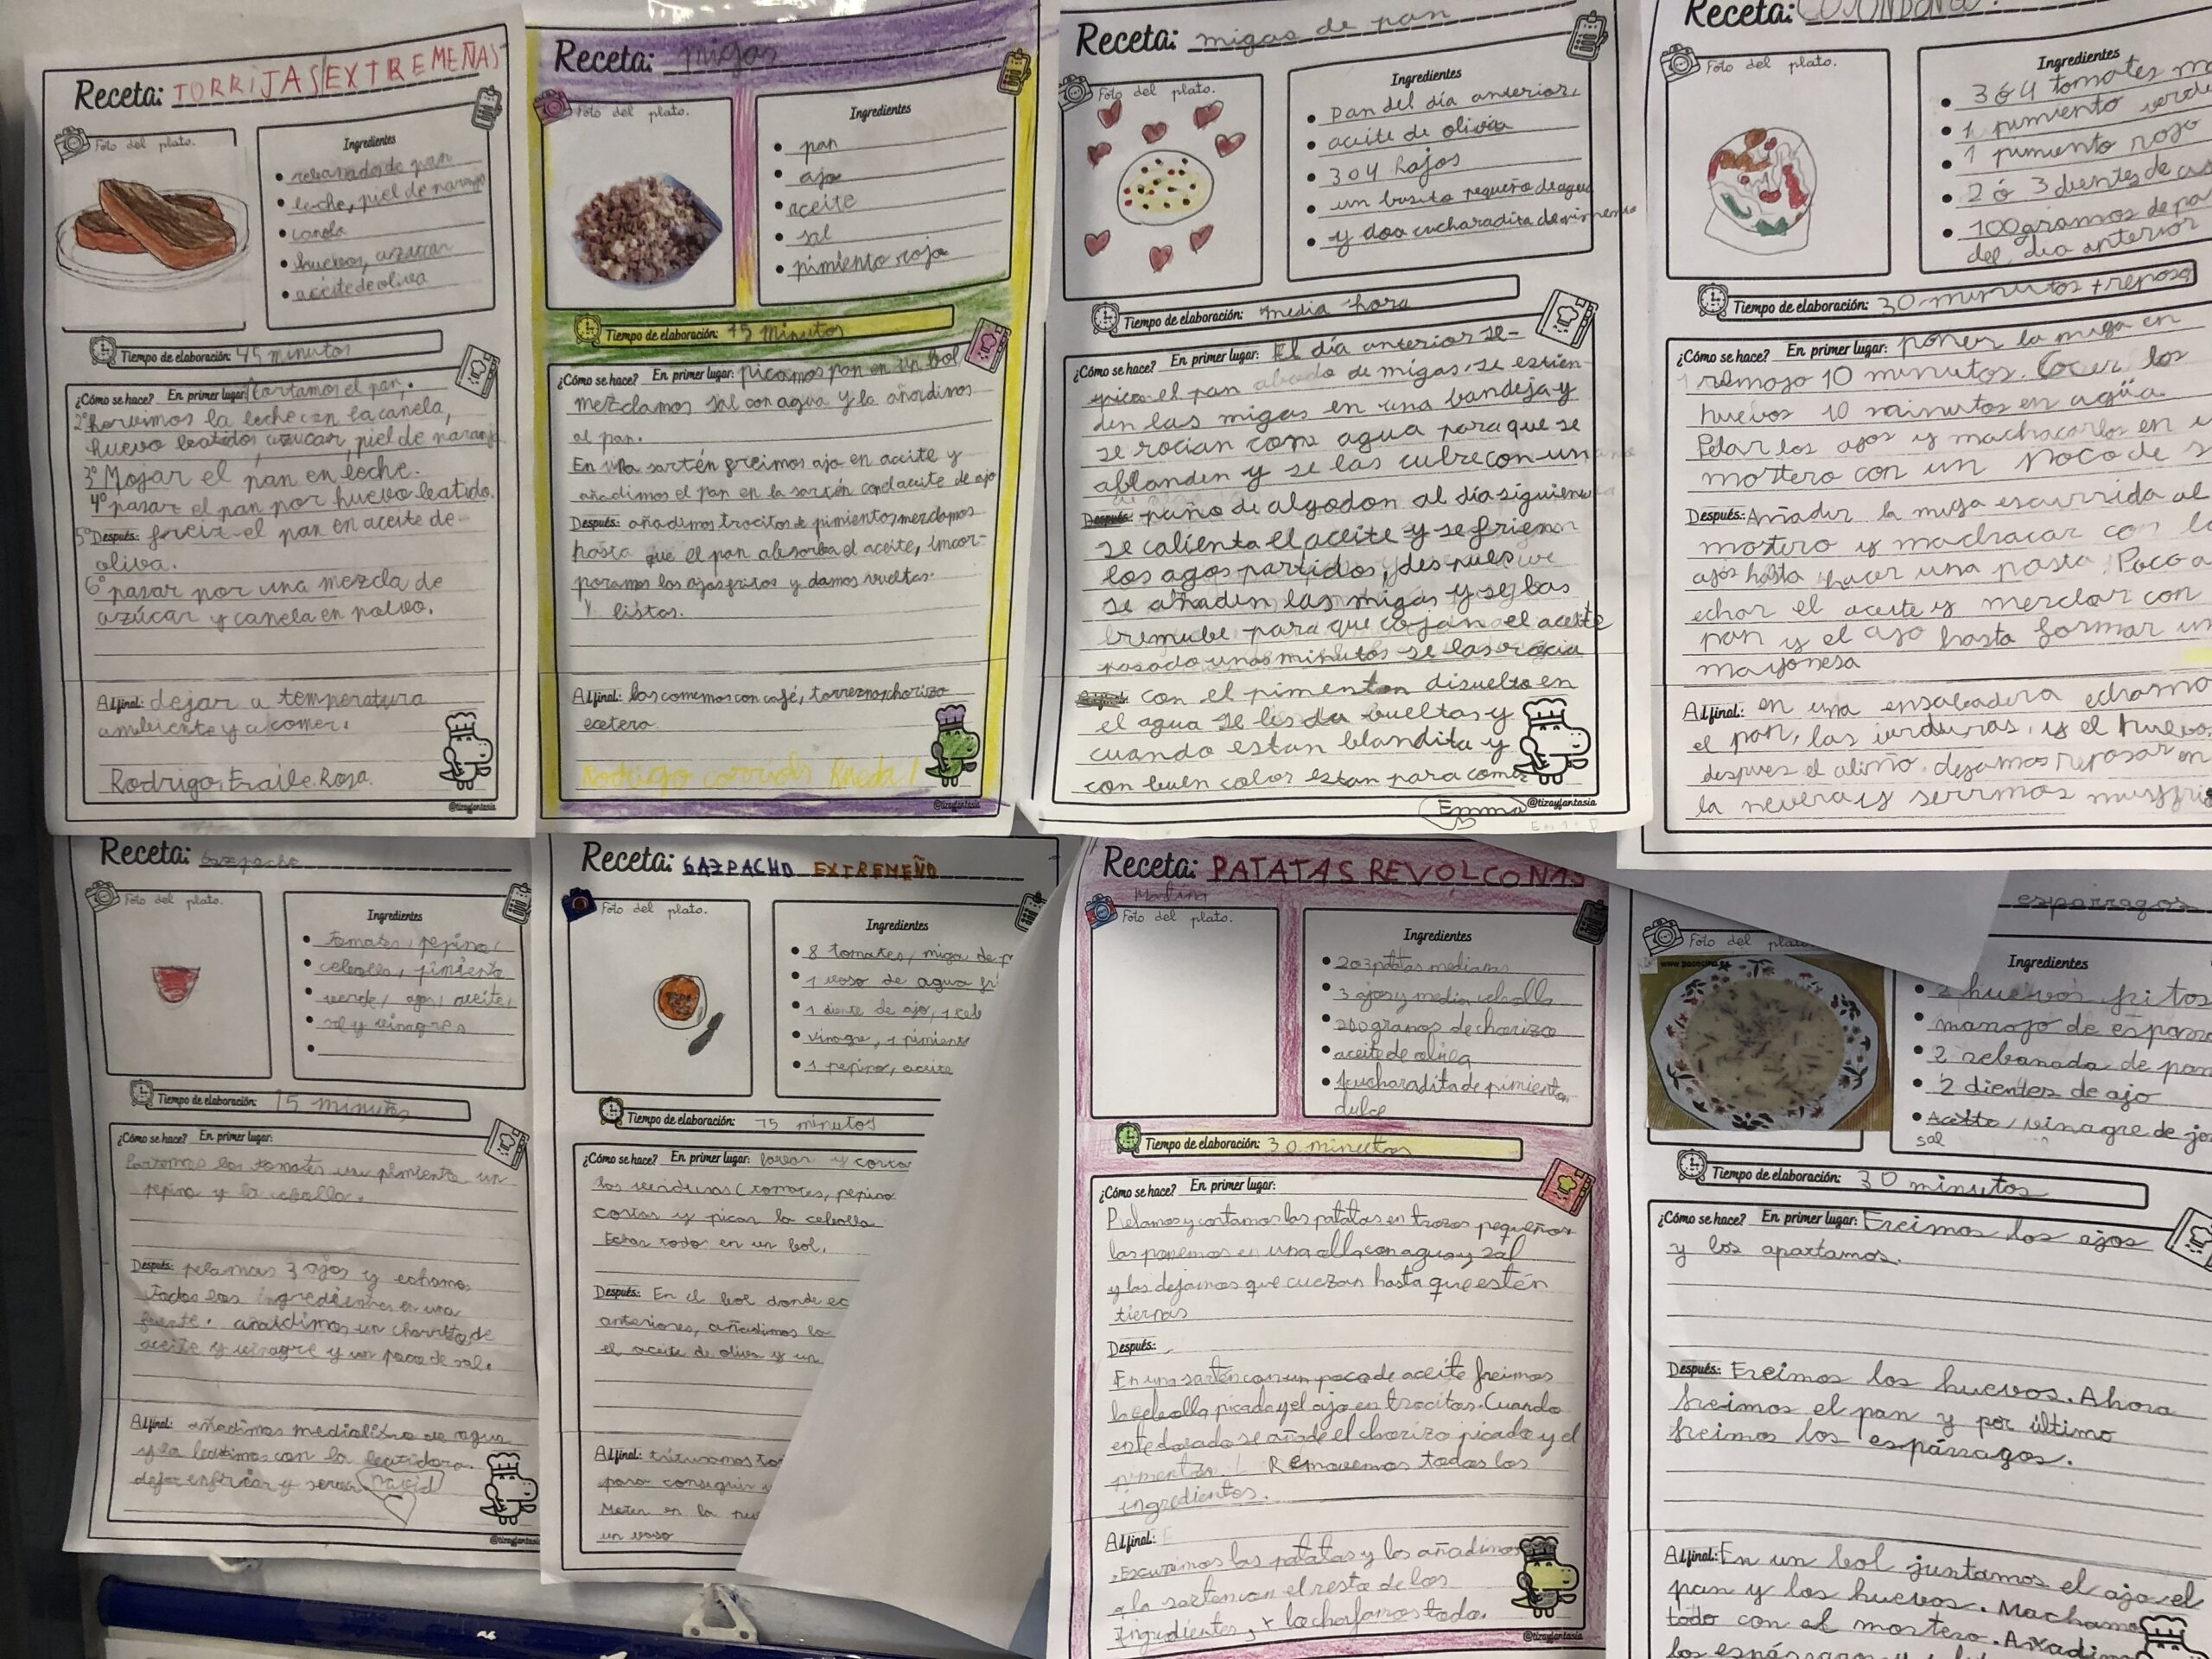 Receta: TORRIJAS EXTREMEÑAS
Foto del plato.
Ingredientes
rebanadas de pan
leche, piel de naranja
canela
huevos, azucar
aceite de oliva
Tiempo de elaboración: 45 minutos
¿Cómo se hace? En primer lugar: Cortamos el pan.
2º hervimos la leche con la canela,
huevo batidos, azucar, piel de naranja
3º Mojar el pan en leche.
4º pasar el pan por huevo batido.
5º Después: freir el pan en aceite de
oliva.
6º pasar por una mezcla de
azúcar y canela en polvo.
Al final: dejar a temperatura
ambiente y a comer.
Rodrigo Fraile Rosa.
@tizayfantasia
Receta: migas
Foto del plato.
Ingredientes
pan
ajo
aceite
sal
pimiento rojo
Tiempo de elaboración: 45 minutos
¿Cómo se hace? En primer lugar: picamos pan en un bol
mezclamos sal con agua y lo añadimos
al pan.
En una sartén freimos ajo en aceite y
añadimos el pan en la sartén con el aceite de ajo
Después: añadimos trocitos de pimientos, mezclamos
hasta que el pan absorba el aceite, incor-
poramos los ajos fritos y damos vueltas.
Y listos.
Al final: los comemos con café, torreznos, chorizo
ecetera
Rodrigo
@tizayfantasia
Receta: migas de pan
Foto del plato.
Ingredientes
Pan del día anterior,
aceite de oliva
3 o 4 hajos
un basito pequeño de agua
y dos cucharadita de
Tiempo de elaboración: media hora
¿Cómo se hace? En primer lugar: El día anterior se-
pica el pan de migas, se estien-
den las migas en una bandeja y
se rocian com agua para que se
ablanden y se las cubre con un
Después: paño de algodon al día siguiente
se calienta el aceite y se frien
los agos partidos, despues
se añaden las migas y se las
remube para que cojan el aceite
pasado unos minutos se las rocia
Al final: con el pimenton disuelto en
el agua se les da bueltas y
cuando estan blandita y
con buen color estan para comer
Emma
@tizayfantasia
Receta:
Foto del plato.
Ingredientes
3 ó 4 tomates
1 pimiento verde
1 pimiento rojo
2 ó 3 dientes de
100 gramos de
del dia anterior
Tiempo de elaboración: 30 minutos + reposo
¿Cómo se hace? En primer lugar: poner la miga en
remojo 10 minutos. Cocer los
huevos 10 minutos en agüa.
Pelar los ajos y machacarlos en
mortero con un poco de
Después: Añadir la miga escurrida al
mortero y machacar con
ajos hasta hacer una pasta. Poco a
echar el aceite y mezclar con
pan y el ajo hasta formar
mayonesa
Al final: en una ensaladera echamos
el pan, las verduras, y el huevo,
despues el aliño. dejamos reposar en
la nevera y servimos
Receta: Gazpacho
Foto del plato.
Ingredientes
tomates, pepino,
cebolla, pimiento
verde, ajo, aceite,
sal y vinagre
Tiempo de elaboración: 15 minutos
¿Cómo se hace? En primer lugar:
los tomates un pimiento un
pepino y la cebolla.
Después: pelamos 3 ajos y echamos
todos los ingredientes en una
fuente. añadimos un chorrito de
aceite y vinagre y un poco de sal.
Al final: añadimos medio litro de agua
y la batimos con la batidora.
dejar enfriar y servir David
@tizayfantasia
Receta: GAZPACHO EXTREMEÑO
Foto del plato.
Ingredientes
8 tomates, miga de
1 vaso de agua
1 diente de ajo, 1
vinagre, 1 pimiento
1 pepino, aceite
Tiempo de elaboración: 15 minutos
¿Cómo se hace? En primer lugar: lavar y
las verduras (tomates, pepino
cortar y picar la cebolla
Echar todo en un bol.
Después: En el bol donde
anteriores, añadimos
el aceite de oliva y un
Al final: trituramos
para conseguir
Meter en la
un vaso
Receta: PATATAS REVOLCONAS
Foto del plato.
Ingredientes
2 o 3 patatas medianas
3 ajos y media cebolla
200 gramos de chorizo
aceite de oliva
1 cucharadita de pimiento
dulce
Tiempo de elaboración: 30 minutos
¿Cómo se hace? En primer lugar:
Pelamos y cortamos las patatas en trozos pequeños
las ponemos en una olla con agua y sal
y las dejamos que cuezan hasta que estén
tiernas
Después:
En una sartén con un poco de aceite freimos
la cebolla picada y el ajo en trocitos. Cuando
este dorado se añade el chorizo picado y el
pimentón. Removemos todos los
ingredientes.
Al final:
Escurrimos las patatas y los añadimos
a la sarten con el resto de los
ingredientes, y lo chafamos todo.
@tizayfantasia
esparragos
Foto del plato.
Ingredientes
2 huevos fritos
manojo de
2 rebanada de pan
2 dientes de ajo
Aceite, vinagre de
sal
Tiempo de elaboración: 30 minutos
¿Cómo se hace? En primer lugar: Freimos los ajos
y los apartamos.
Después: Freimos los huevos. Ahora
freimos el pan y por último
freimos los espárragos.
Al final: En un bol juntamos el ajo, el
pan y los huevos.
todo con el mortero.
los espárragos